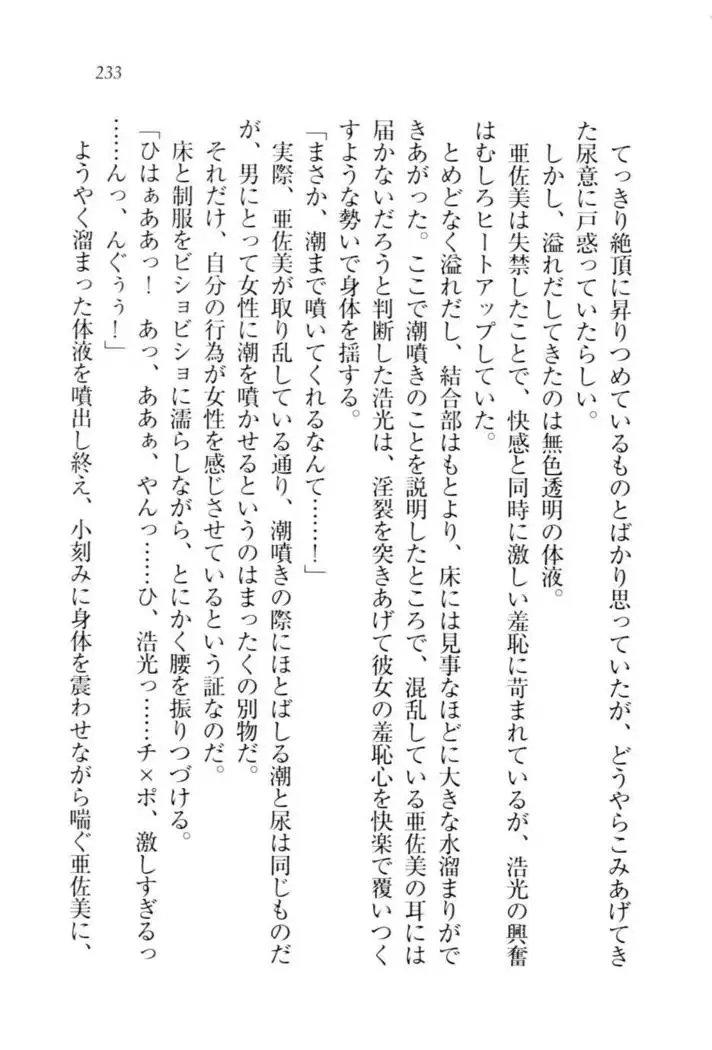 233
てっきり絶頂に昇りつめているものとばかり思っていたが、どうやらこみあげてき
た尿意に戸惑っていたらしい。
しかし、溢れだしてきたのは無色透明の体液。
亜佐美は失禁したことで、快感と同時に激しい羞恥に苛まれているが、浩光の興奮
はむしろヒートアップしていた。
とめどなく溢れだし、結合部はもとより、床には見事なほどに大きな水溜まりがで
きあがった。ここで潮噴きのことを説明したところで、混乱している亜佐美の耳には
届かないだろうと判断した浩光は、淫裂を突きあげて彼女の羞恥心を快楽で覆いつく
すような勢いで身体を揺する。
「まさか、潮まで噴いてくれるなんて……！」
実際、亜佐美が取り乱している通り、潮噴きの際にほとばしる潮と尿は同じものだ
が、男にとって女性に潮を噴かせるというのはまったくの別物だ。
それだけ、自分の行為が女性を感じさせているという証なのだ。
床と制服をビショビショに濡らしながら、とにかく腰を振りつづける。
「ひはぁああっ！　あっ、ああぁ、やんっ……ひ、浩光っ……チ×ポ、激しすぎるっ
……んっ、んぐぅぅ！」
ようやく溜まった体液を噴出し終え、小刻みに身体を震わせながら喘ぐ亜佐美に、